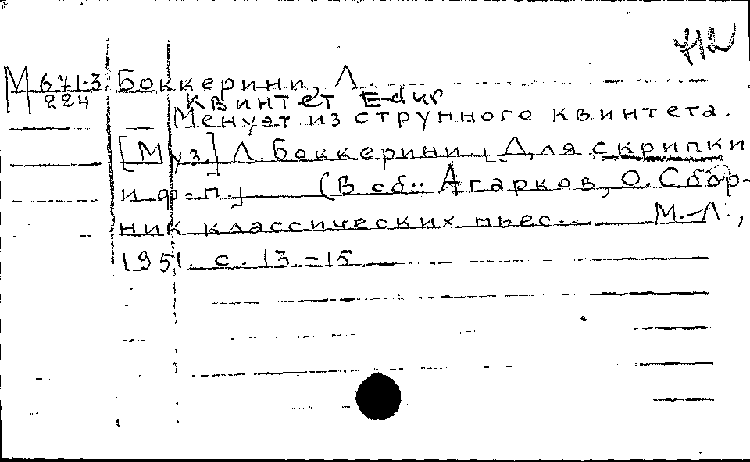 М 671-3 Боккерини, Л.
224 Квинтет E-dur
Менуэт из струнного квинтета.
[Муз.] Л. Боккерини, Для скрипки
и ф-п.] (В сб.: Агарков, О. Сбор-
ник классических пьес. М.-Л.,
1951 с. 13-15